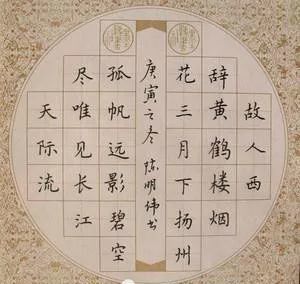 故人西
辞黄鹤楼烟
花三月下扬州
庚寅之冬 陈明伟书
孤帆远影碧空
尽唯见长江
天际流